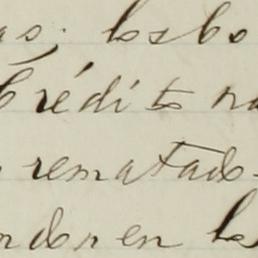 as; los bo
Crédito na
rematado
ndon en los